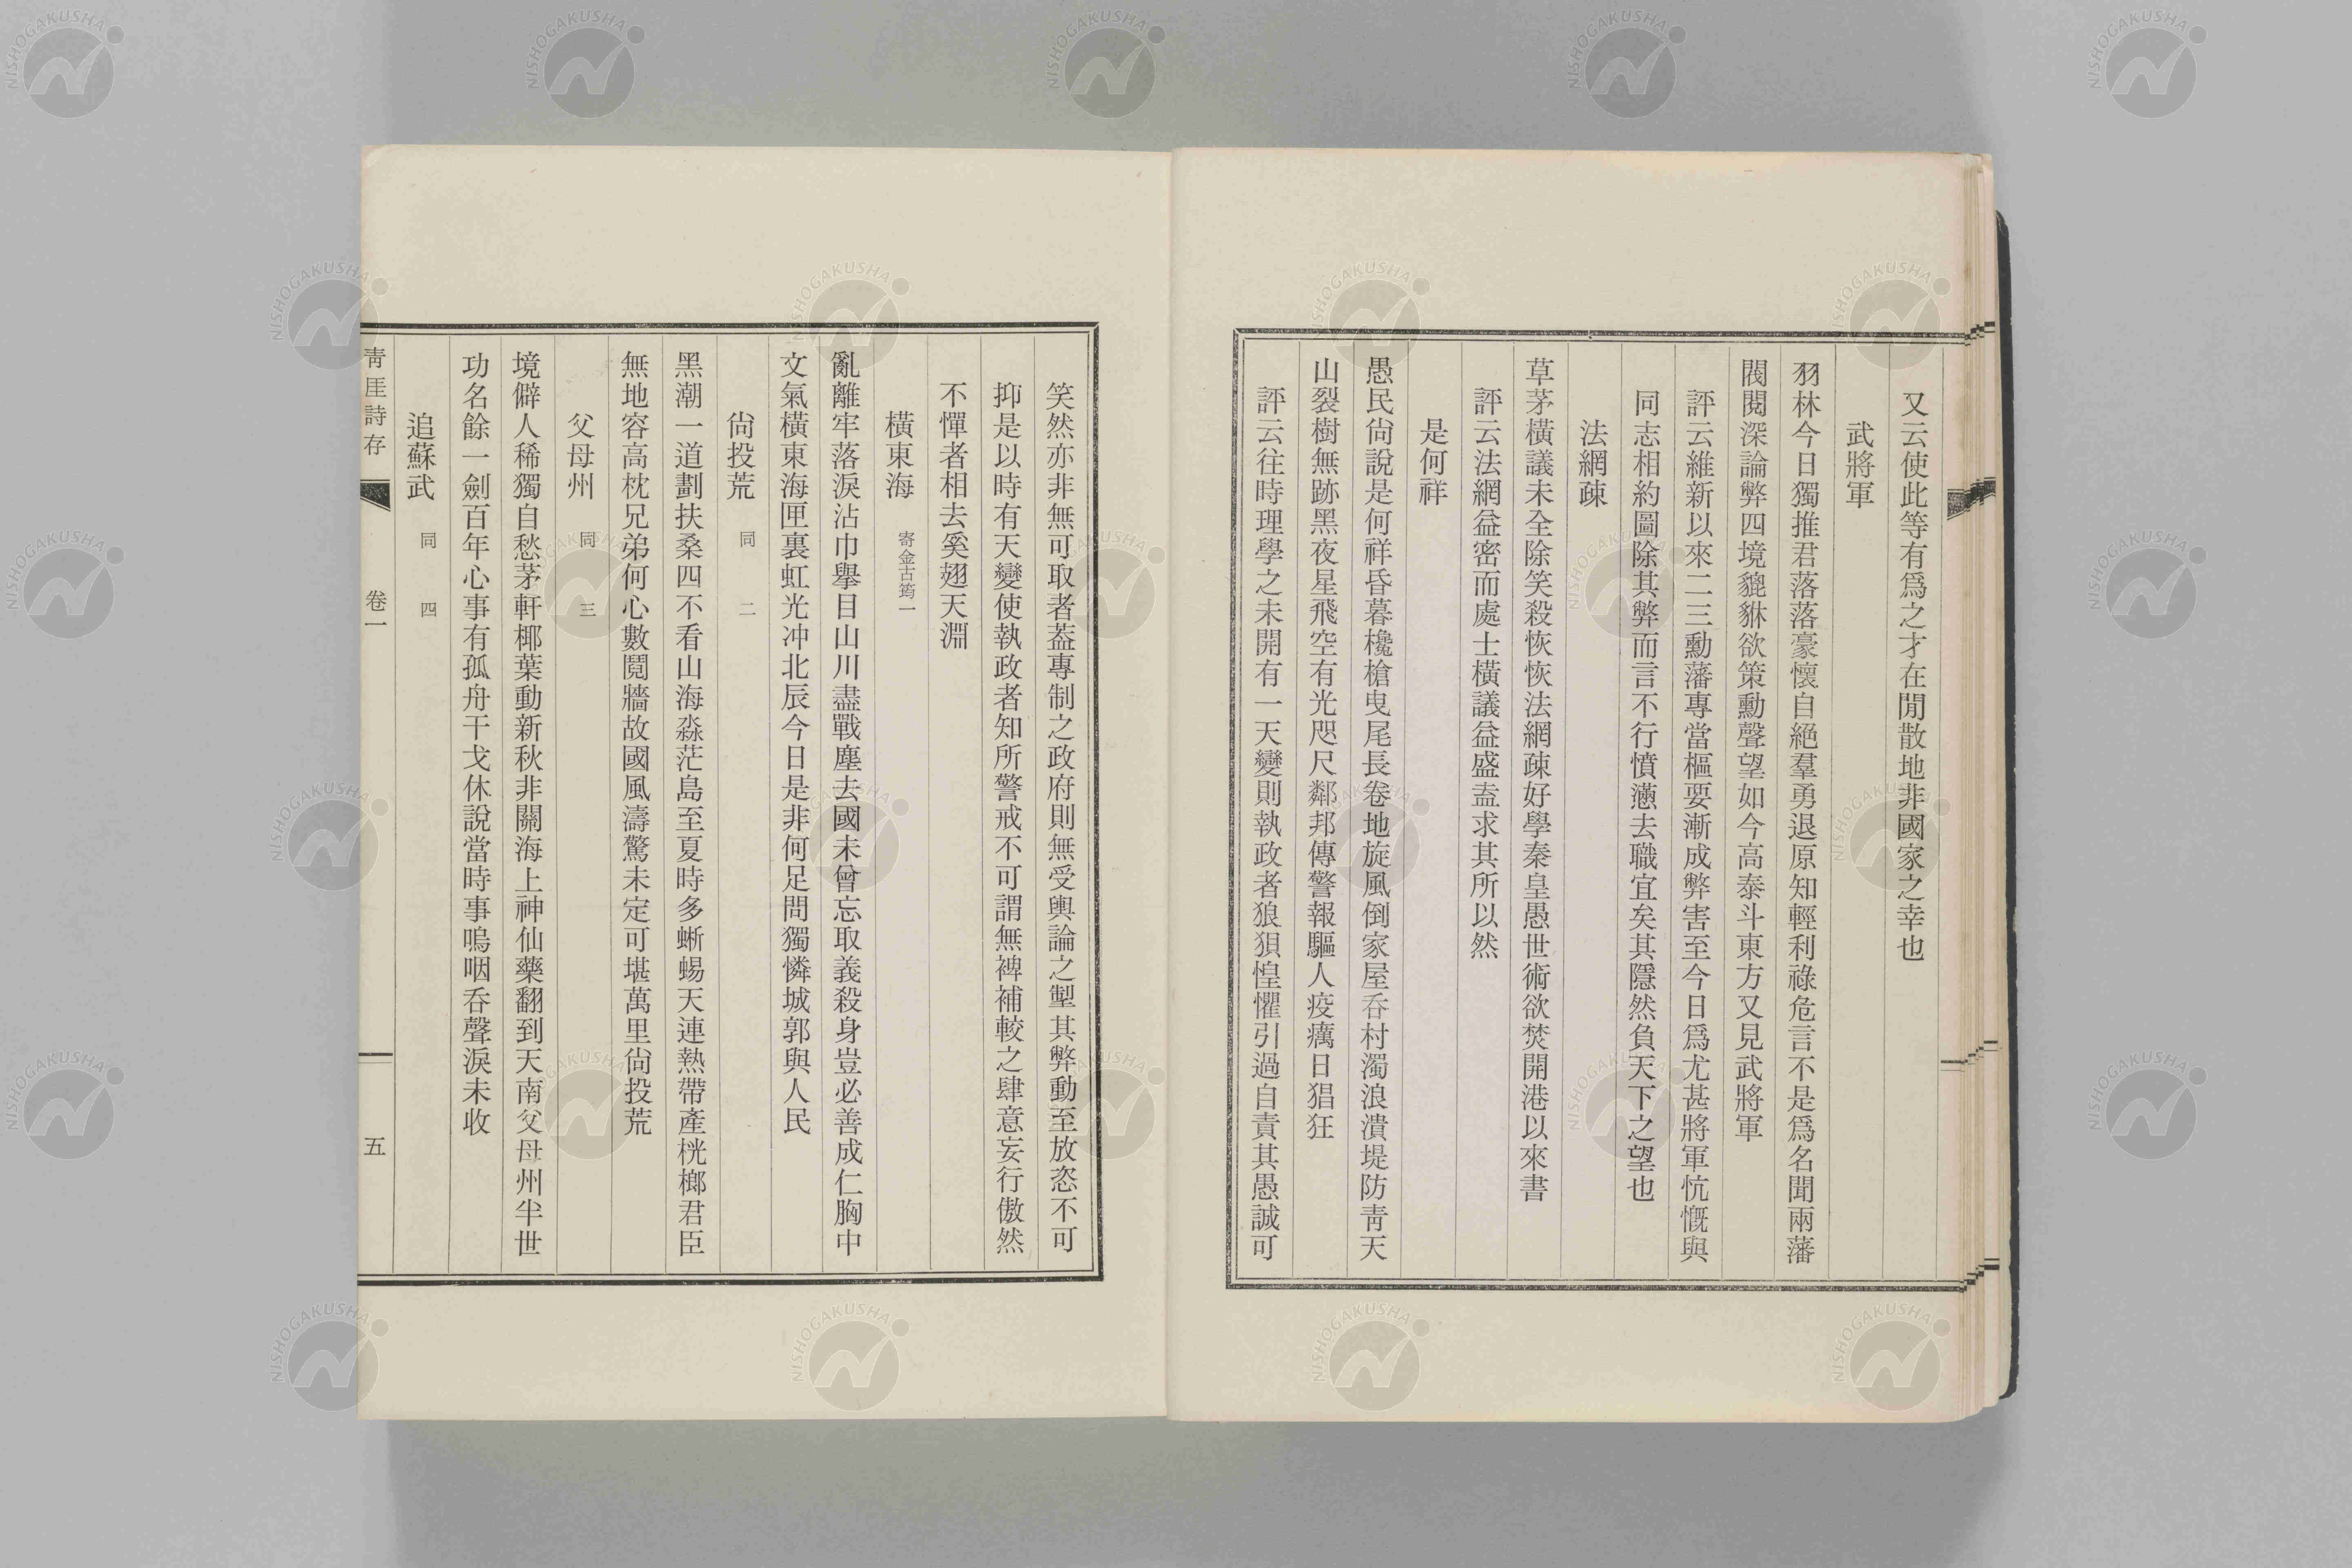 又云使此等有爲之才在閒散地非國家之幸也
武將軍
羽林今日獨推君落落豪懷自絕羣勇退原知輕利祿危言不是爲名聞兩藩
閥閱深論弊四境貔貅欲策勳聲望如今高泰斗東方又見武將軍
評云維新以來二三勳藩專當樞要漸成弊害至今日爲尤甚將軍忼慨與
同志相約圖除其弊而言不行憤懣去職宜矣其隱然負天下之望也
法網疎
草茅橫議未全除笑殺恢恢法網疎好學秦皇愚世術欲焚開港以來書
評云法網益密而處士橫議益盛盍求其所以然
是何祥
愚民尙說是何祥昏暮欃槍曳尾長卷地旋風倒家屋吞村濁浪潰堤防靑天
山裂樹無跡黑夜星飛空有光咫尺鄰邦傳警報驅人疫癘日猖狂
評云往時理學之未開有一天變則執政者狼狽惶懼引過自責其愚誠可
笑然亦非無可取者蓋專制之政府則無受輿論之掣其弊動至放恣不可
抑是以時有天變使執政者知所警戒不可謂無裨補較之肆意妄行傲然
不憚者相去奚翅天淵
橫東海 寄金古筠一
亂離牢落淚沾巾擧目山川盡戰塵去國未曾忘取義殺身豈必善成仁胸中
文氣橫東海匣裏虹光冲北辰今日是非何足問獨憐城郭與人民
尙投荒 同 二
黑潮一道劃扶桑四不看山海淼茫島至夏時多蜥蜴天連熱帶產桄榔君臣
無地容高枕兄弟何心數鬩牆故國風濤驚未定可堪萬里尙投荒
父母州 同 三
境僻人稀獨自愁茅軒椰葉動新秋非關海上神仙藥翻到天南父母州半世
功名餘一劍百年心事有孤舟干戈休說當時事嗚咽吞聲淚未收
追蘇武 同 四
靑厓詩存 卷一 五
NISHOGAKUSHA